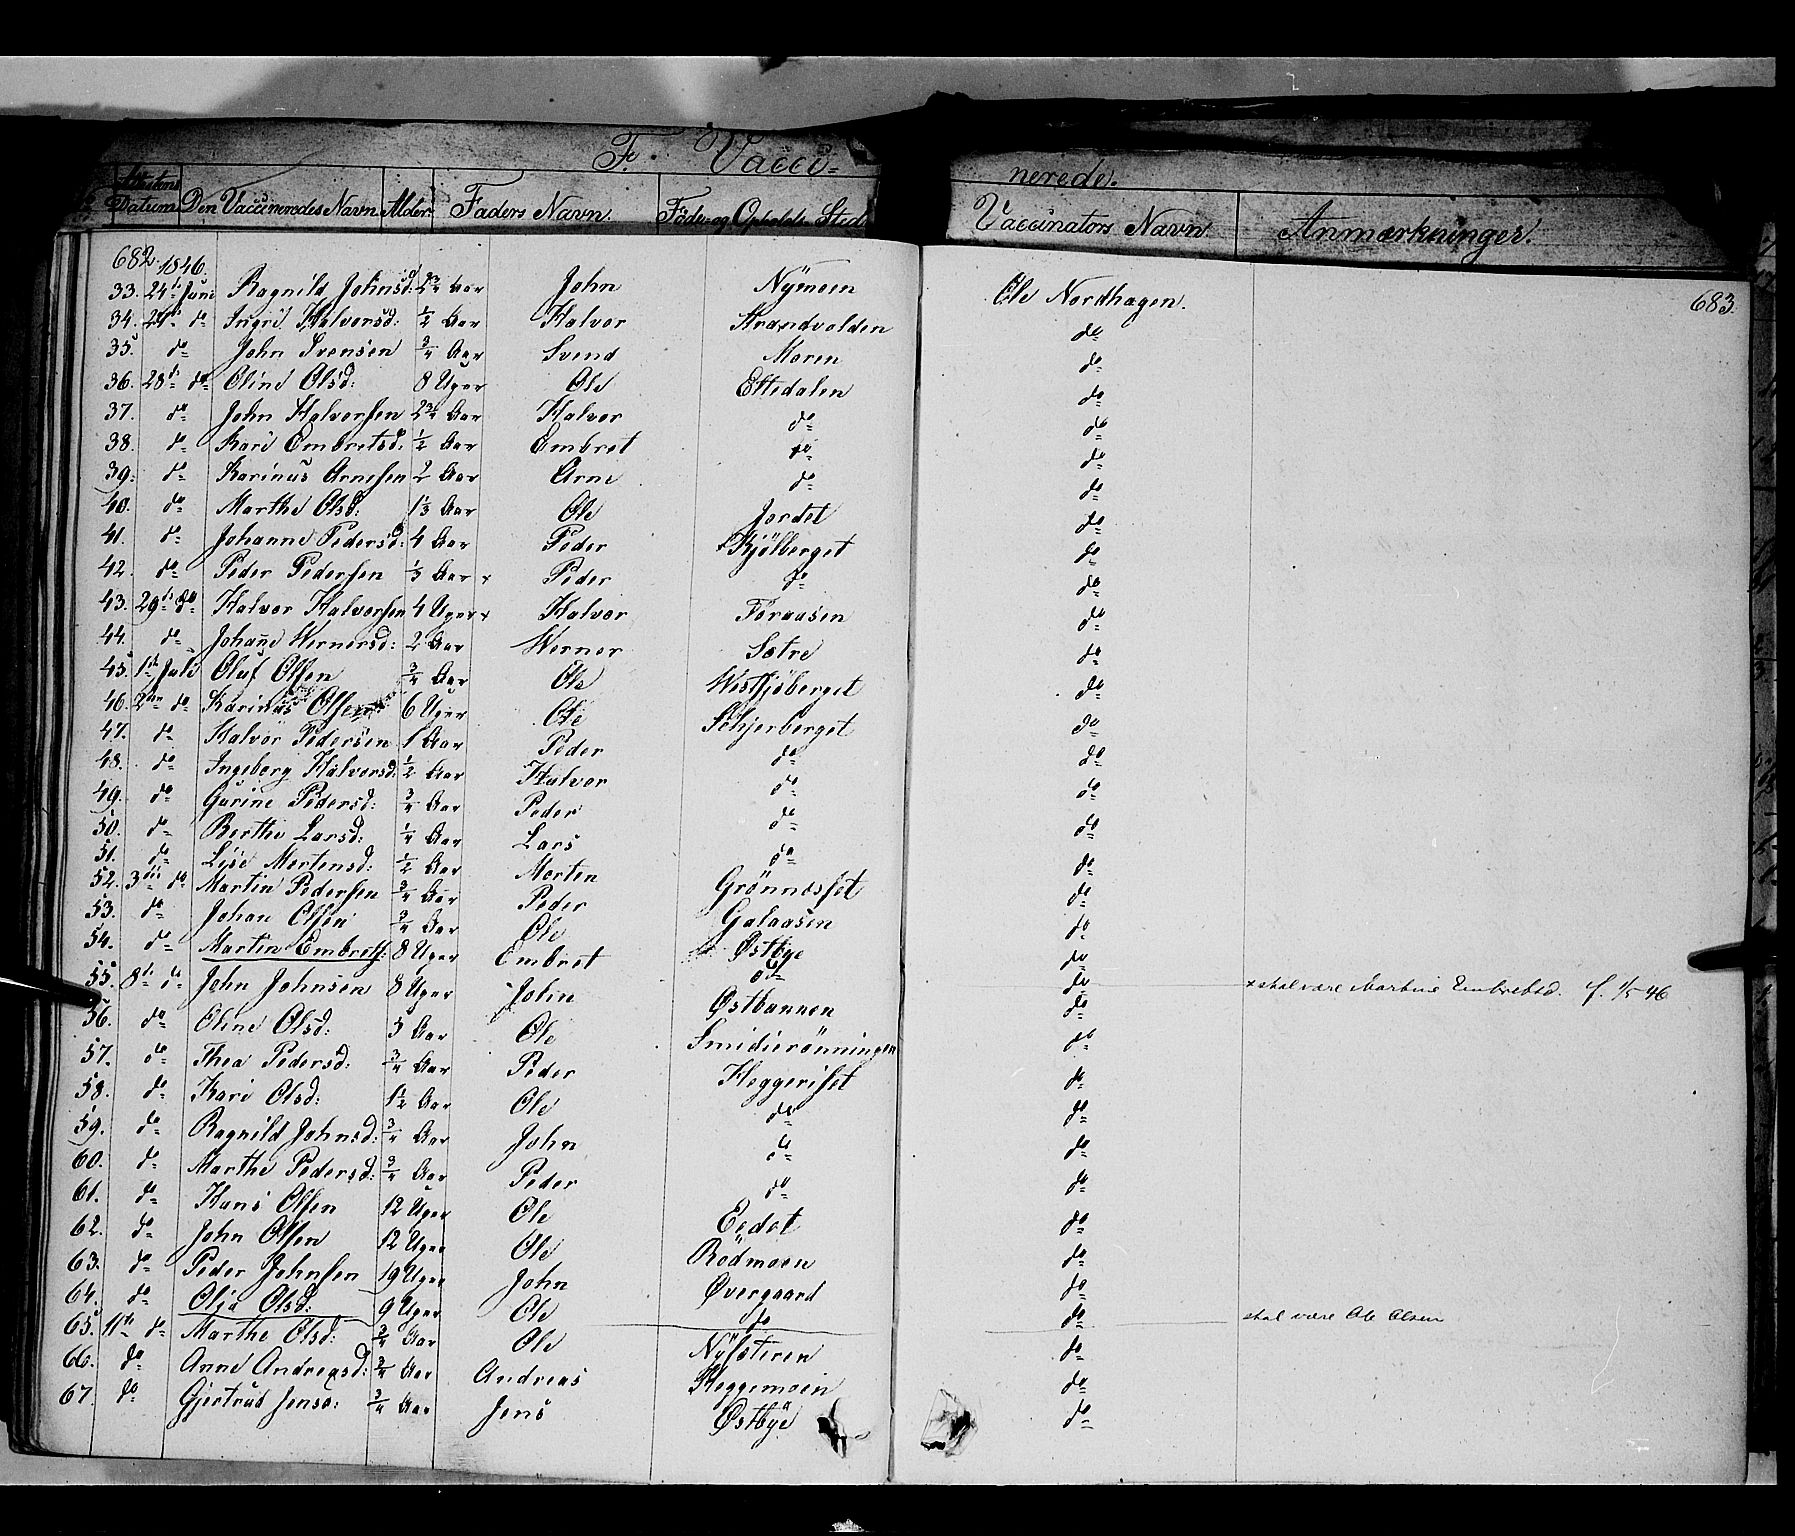 F. Vacci-
nerede.
Attestens Datum Den Vaccineredes Navn Alder Faders Navn. Føde- og Opholds Sted Vaccinators Navn. Anmærkninger.
682. 1846.
683.
33. 24de Juni Ragnild Johnsd: 2¾ Aar John Nÿmoen Ole Nordhagen.
34. 24de do Ingri Halvorsd: ½ Aar Halvor Strandvolden do
35. do John Svensen ¾ Aar Svend Moren do
36. 28de do Eline Olsd: 8 Uger Ole Eltedalen do
37. do John Halvorsen 2¾ Aar Halvor do do
38. do Kari Embretsd: ½ Aar Embret do do
39. do Karinus Arnesen 2 Aar Arne do do
40. do Marthe Olsd: 1⅓ Aar Ole Jordet do
41. do Johanne Pedersd: 4 Aar Peder Kjölberget do
42. do Peder Pedersen ⅓ Aar Peder do do
43. 29de do Halvor Halvorsen 4 Uger Halvor Foraasen do
44. do Johanne Wernersd: 2 Aar Werner Sætre do
45. 1ste Juli Oluf Olsen ¾ Aar Ole Westsjöberget do
46. 2den do Karinus Olsen 6 Uger Ole Schjerberget do
47. do Halvor Pedersen 1 Aar Peder do do
48. do Ingeborg Halvorsd: ½ Aar Halvor do do
49. do Gurine Pedersd: ¾ Aar Peder do do
50. do Berthe Larsd: ¼ Aar Lars do do
51. do Lise Mortensd: ½ Aar Morten Grönnæsset do
52. 3die do Martin Pedersen ¾ Aar Peder Galaasen do
53. do Johan Olsen ¾ Aar Ole Østbye do
54. do Martin Embrets: 8 Uger Embret do do x skal være Martine Embretsd. f. 1/5 46
55. 8de do John Johnsen 8 Uger John Østbannen do
56. do Eline Olsd: 5 Aar Ole Smidierönningen do
57. do Thea Pedersd: ¾ Aar Peder Heggeriset do
58. do Kari Olsd: 1½ Aar Ole do do
59. do Ragnild Johnsd: ¾ Aar John do do
60. do Marthe Pedersd: ¾ Aar Peder do do
61. do Hans Olsen 12 Uger Ole Eedet do
62. do John Olsen 12 Uger Ole Rödmoen do
63. do Peder Johnsen 19 Uger John Øvergaard do
64. do Olea Olsd: 9 Uger Ole do do skal være Ole Olsen
65. 11te do Marthe Olsd: ¾ Aar Ole Nÿsæteren do
66. do Anne Andreasd: ¾ Aar Andreas Heggemoen do
67. do Gjertrud Jensd: ¾ Aar Jens Østbÿe do